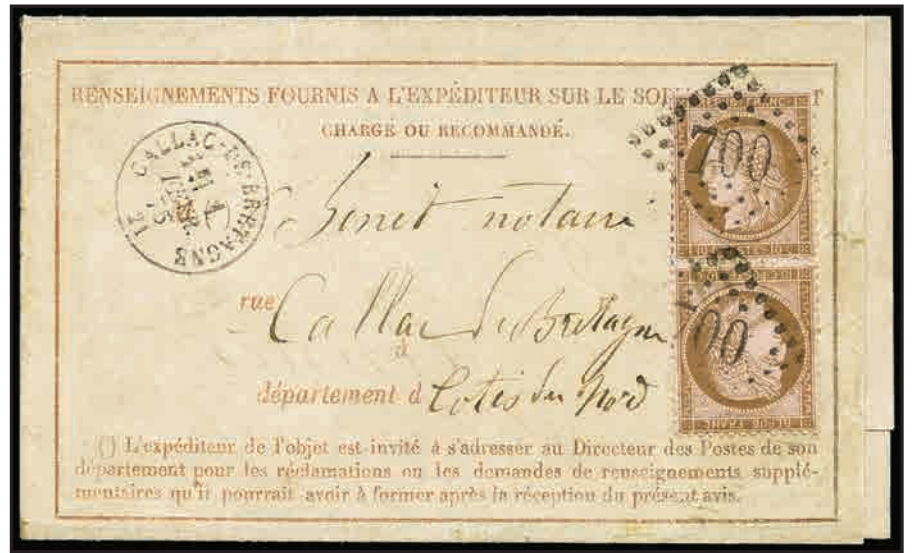 RENSEIGNEMENTS FOURNIS A L'EXPÉDITEUR SUR LE SOR
CHARGÉ OU RECOMMANDÉ.
CALLAC-DE-BRETAGNE
notaire
rue
Callac de Bretagne
à
département d Cotes du Nord
() L'expéditeur de l'objet est invité à s'adresser au Directeur des Postes de son
département pour les réclamations ou les demandes de renseignements supplé-
mentaires qu'il pourrait avoir à former après la réception du présent avis.
700
10 C POSTES 10 C
00